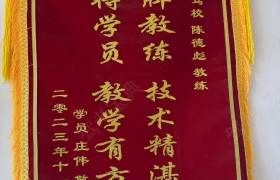 驾校 陈德彪 教练
牌教练 技术精湛
待学员 教学有方
学员 庄伟 敬
二零二三年十